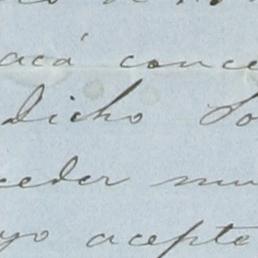 acá conce
dicho So
ceder mu
yo acepte